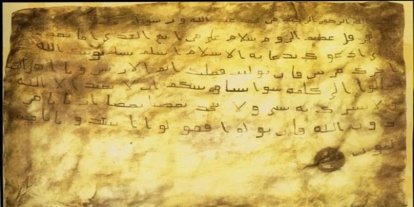 الله الرحمن الرحيم من محمد عبد الله ورسوله
هرقل عظيم الروم سلام على من اتبع الهدى اما بعد
فانى ادعوك بدعايه الاسلام اسلم تسلم يوتك الله
اجرك مرتين فان توليت فعليك اثم الاريسين ويا اهل
تعالوا الى كلمه سوا بيننا وبينكم الا نعبد الا الله
ولا نشرك به شيا ولا يتخذ بعضنا بعضا اربابا من
دون الله فان تولوا فقولوا اشهدوا بانا